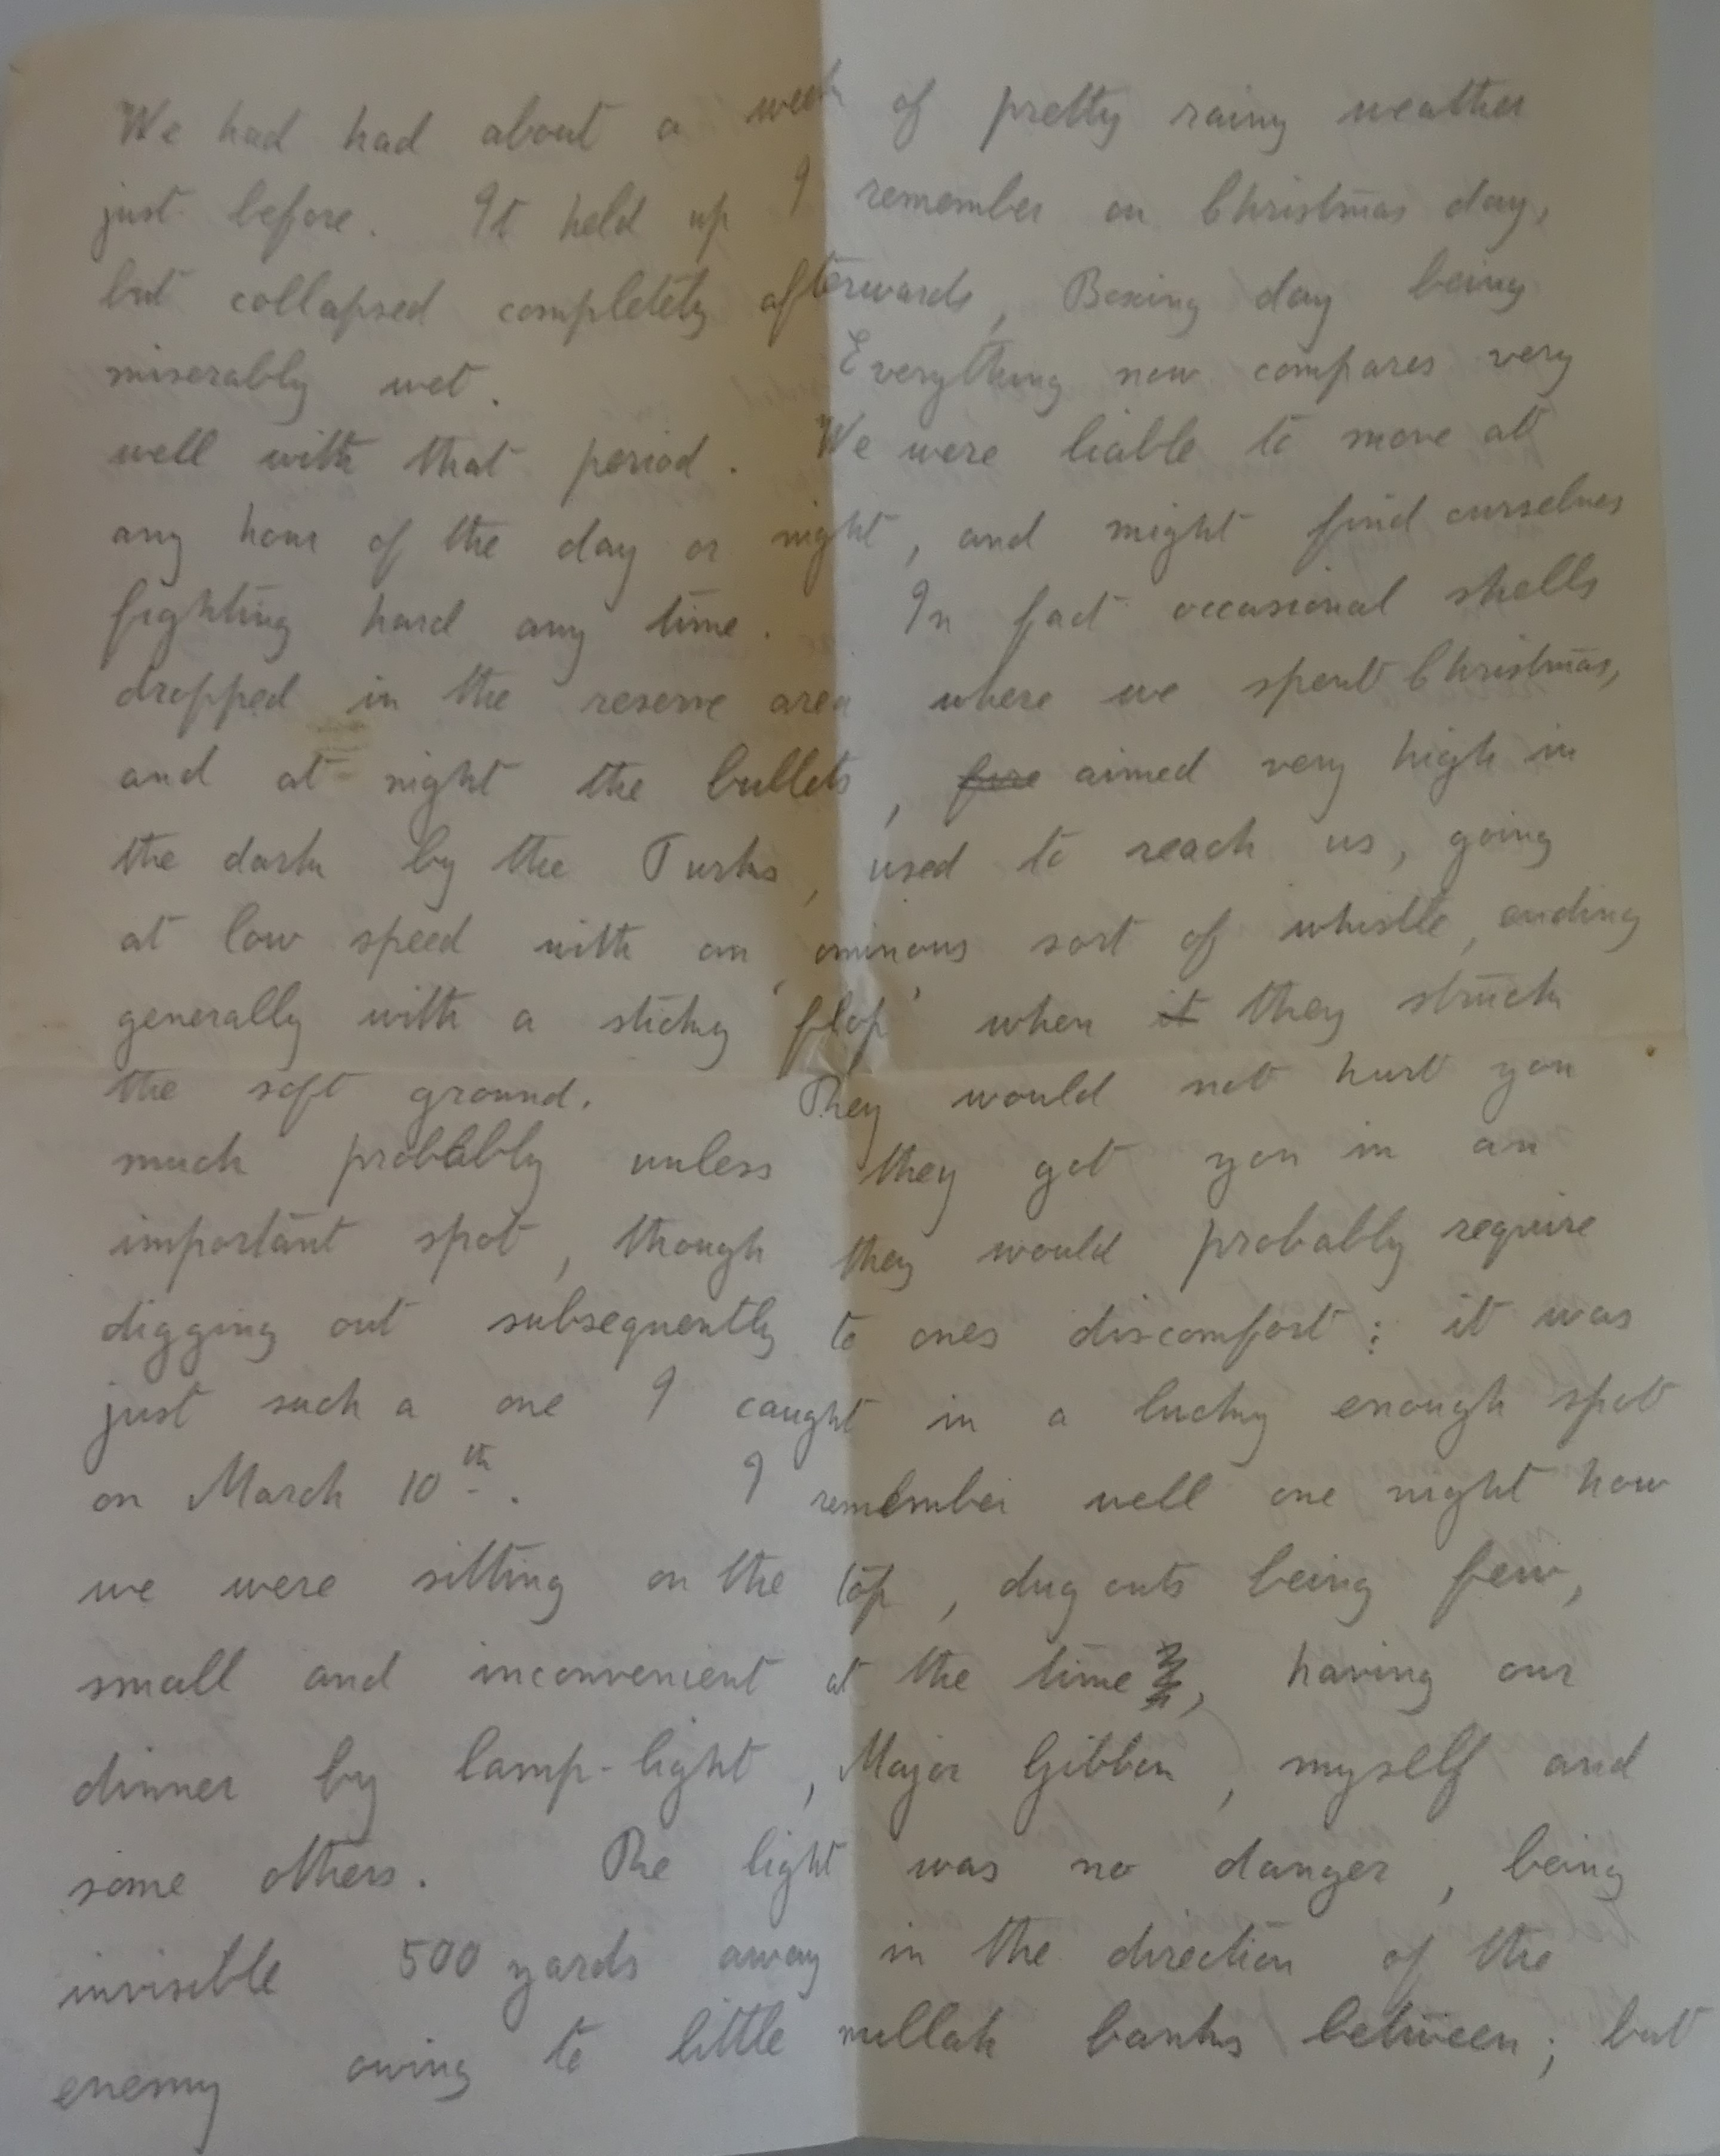 We had had about a week of pretty rainy weather
just before. It held up I remember on Christmas day,
but collapsed completely afterwards, Boxing day being
miserably wet. Everything now compares very
well with that period. We were liable to move at
any hour of the day or night, and might find ourselves
fighting hard any time. In fact occasional shells
dropped in the reserve area where we spent Christmas,
and at night the bullets, fire aimed very high in
the dark by the Turks, used to reach us, going
at low speed with an ominous sort of whistle, ending
generally with a sticky 'flop' when it they struck
the soft ground. They would not hurt you
much probably unless they got you in an
important spot, though they would probably require
digging out subsequently to ones discomfort: it was
just such a one I caught in a lucky enough spot
on March 10th. I remember well one night how
we were sitting on the top, dug outs being few,
small and inconvenient at the time, having our
dinner by lamp-light, Major Gibbon, myself and
some others. The light was no danger, being
invisible 500 yards away in the direction of the
enemy owing to little nullah banks between; but